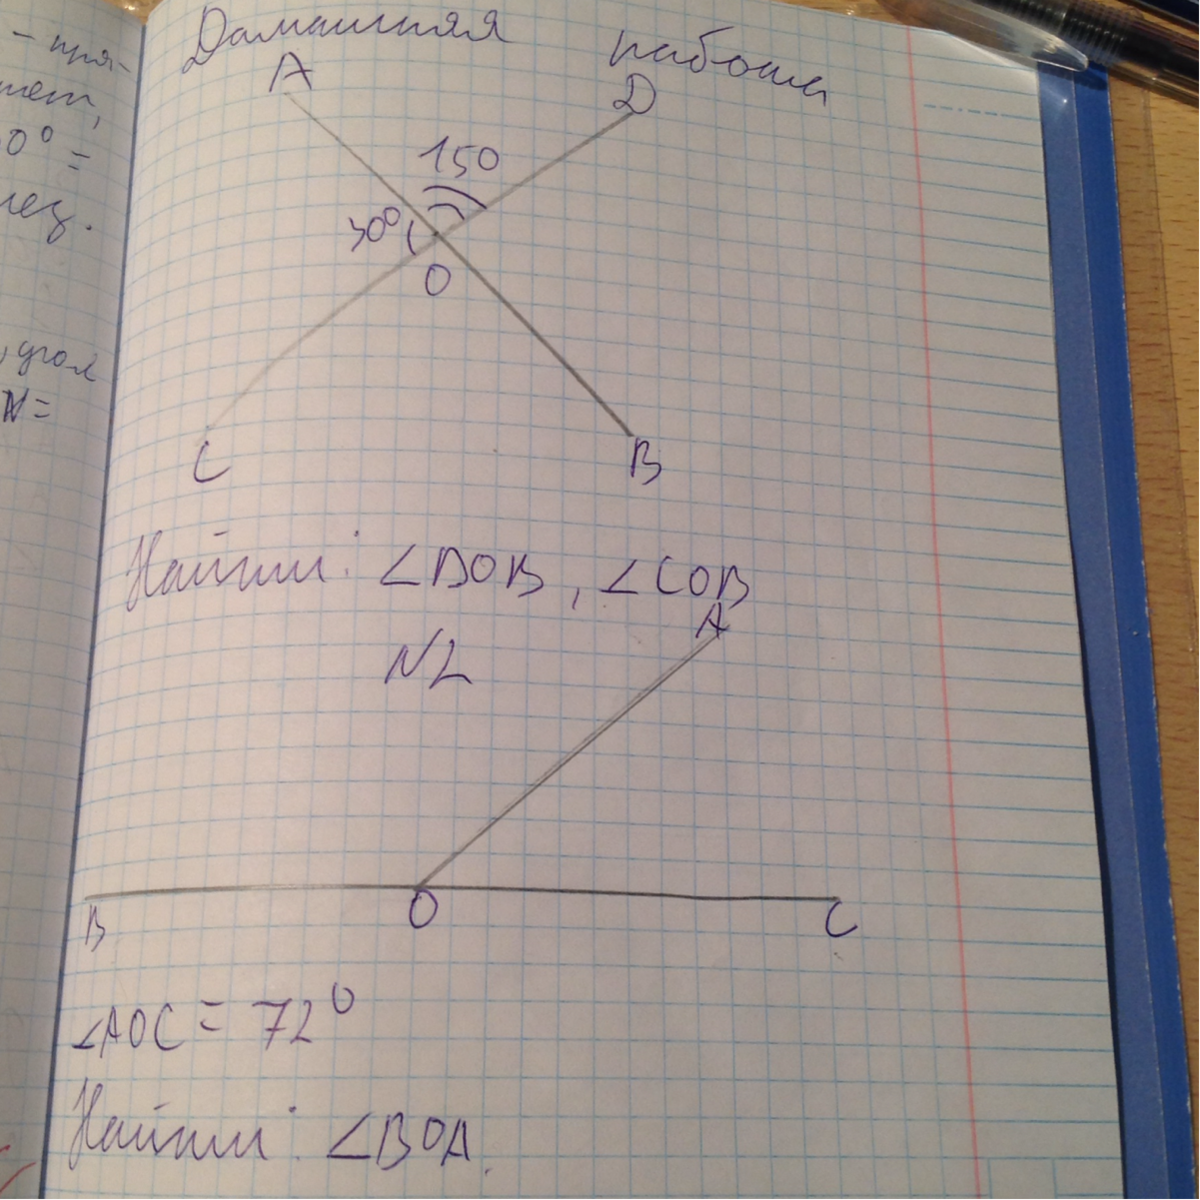 - пря-
0° =
угол
N =
Домашняя работа
A
D
150
30°
O
C
B
Найти: ∠DOB, ∠COB
N2
A
B
O
C
∠AOC = 72°
Найти: ∠BOA.